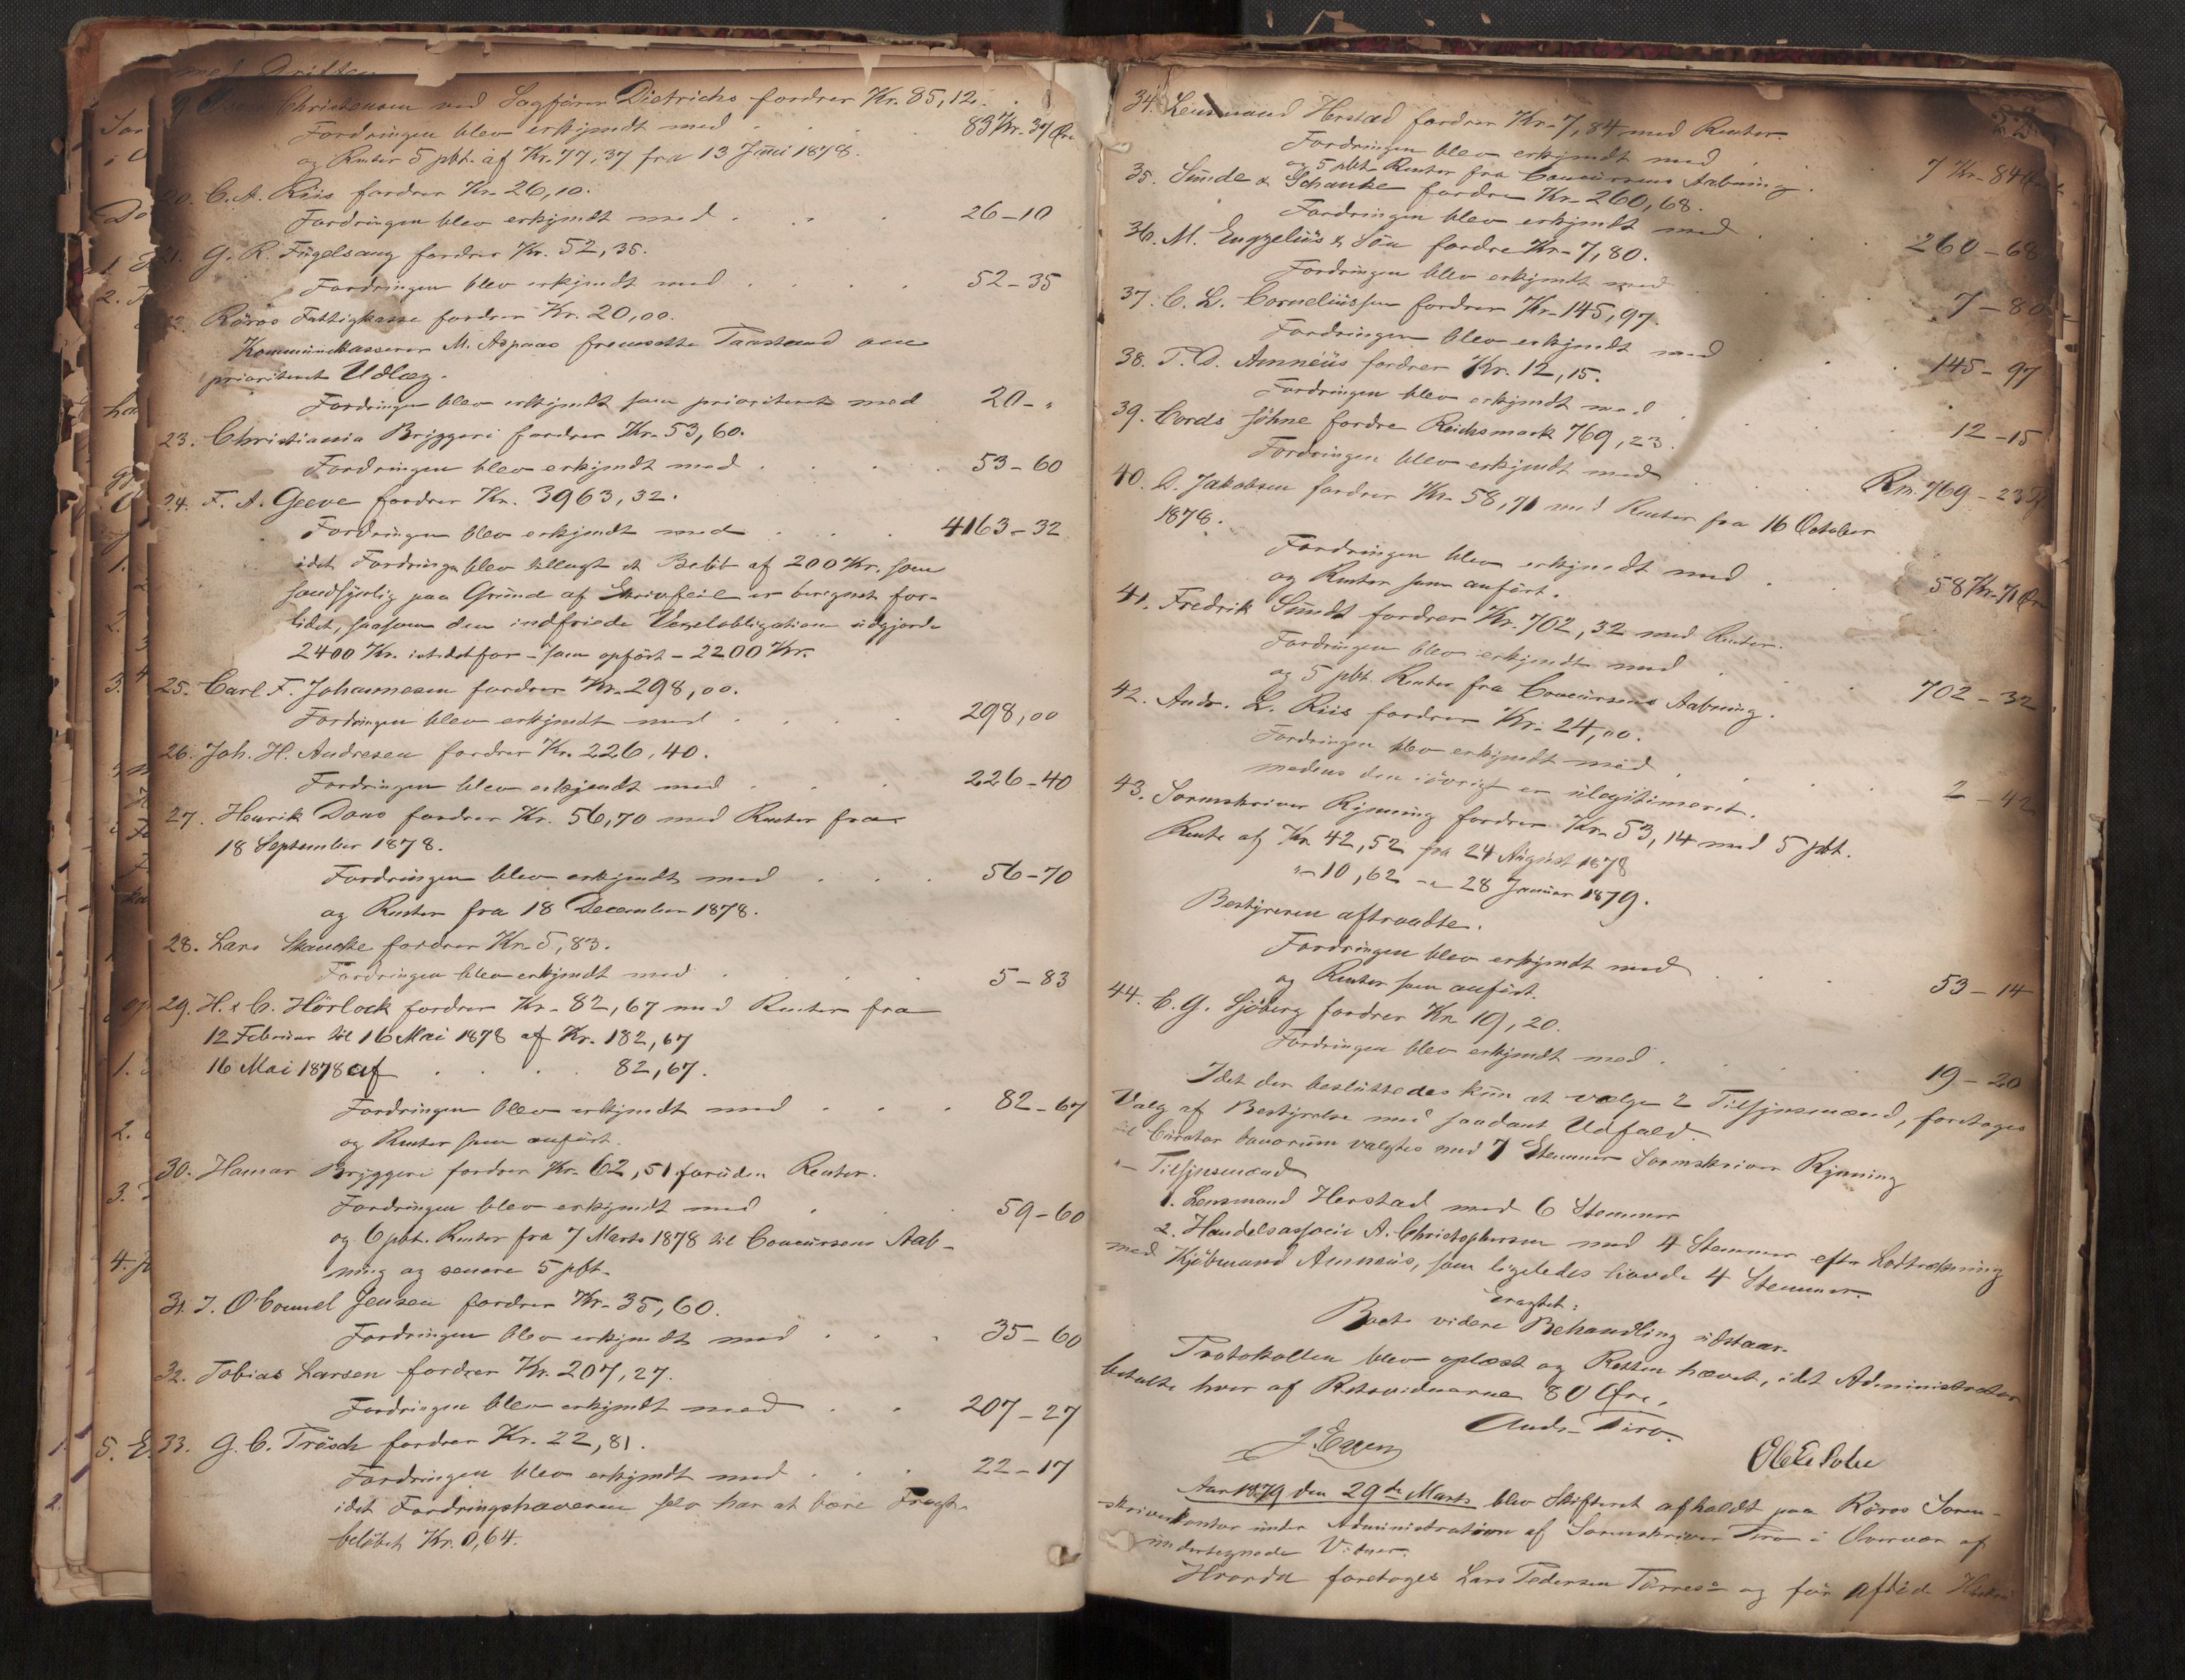 Christensen ved Sagfører Dietrichs fordrer Kr. 85,12.
Fordringen blev erkjendt med . . . 83 Kr. 37 Øre
og Renter 5 pct. af Kr. 77,37 fra 13 Juni 1878.
20. C. A. Riis fordrer Kr. 26,10.
Fordringen blev erkjendt med . . . 26-10
21. G. R. Fúgelsang fordrer Kr. 52,35.
Fordringen blev erkjendt med . . . 52-35
22. Röros Fattigkasse fordrer Kr. 20,00.
Kommúnekasserer M. Aspaas fremsatte Paastand om
prioriteret Udlæg.
Fordringen blev erkjendt som prioriteret med 20-"
23. Christiania Bryggeri fordrer Kr. 53,60.
Fordringen blev erkjendt med . . . 53-60
24. F. A. Geeve fordrer Kr. 3963,32.
Fordringen blev erkjendt med . . . 4163-32
idet Fordringen blev tillagt et Belöb af 200 Kr. som
sandsynlig paa Grúnd af Skrivfeil er beregnet for-
lidet, saasom den indfriede Vexelobligation údgjorde
2400 Kr. istedetfor - som opfört - 2200 Kr.
25. Carl F. Johannesen fordrer Kr. 298,00.
Fordringen blev erkjendt med . . . 298,00
26. Joh. H. Andresen fordrer Kr. 226,40.
Fordringen blev erkjendt med . . . 226-40
27. Henrik Dons fordrer Kr. 56,70 med Renter fra
18 September 1878.
Fordringen blev erkjendt med . . . 56-70
og Renter fra 18 December 1878.
28. Lars Skancke fordrer Kr. 5,83.
Fordringen blev erkjendt med . . . 5-83
29. H. & C. Hörlock fordrer Kr. 82,67 med Renter fra
12 Februar til 16 Mai 1878 af Kr. 182,67
16 Mai 1878 af . . . 82,67.
Fordringen blev erkjendt med . . . 82-67
og Renter som anfört.
30. Hamar Bryggeri fordrer Kr. 62,51 forúden Renter.
Fordringen blev erkjendt med . . . 59-60
og 6 pct. Renter fra 7 Marts 1878 til Concúrsens Aab-
ning og senere 5 pct.
31. J. O'Connel Jensen fordrer Kr. 35,60.
Fordringen blev erkjendt med . . . 35-60
32. Tobias Larsen fordrer Kr. 207,27.
Fordringen blev erkjendt med . . 207-27
33. G. C. Trösch fordrer Kr. 22,81.
Fordringen blev erkjendt med . . . 22-17
idet Fordringshaveren selv har at bære Fragt-
belöbet Kr. 0,64.
34. Lensmand Herstad fordrer Kr. 7,84 med Renter
Fordringen blev erkjendt med . . 7 Kr. 84 Øre
og 5 pct. Renter fra Concúrsens Aabning.
35. Súnde & Schanke fordrer Kr. 260,68.
Fordringen blev erkjendt med . . . 260-68
36. M. Engzeliús & Sön fordre Kr. 7,80.
Fordringen blev erkjendt med . . . 7-80
37. C. L. Corneliússen fordrer Kr. 145,97.
Fordringen blev erkjendt med . . . 145-97
38. P. D. Amnéús fordrer Kr. 12,15.
Fordringen blev erkjendt med . . . 12-15
39. Cords söhne fordre Reichsmark 769,23.
Fordringen blev erkjendt med . . . Rm. 769-23
40. D. Jakobsen fordrer Kr. 58,71 med Renter fra 16 October
1878.
Fordringen blev erkjendt med . . . 58 Kr. 71 Øre
og Renter som anfört.
41. Fredrik Súndt fordrer Kr. 702,32 med Renter.
Fordringen blev erkjendt med . . . 702-32
og 5 pct. Renter fra Concúrsens Aabning.
42. Andr. L. Riis fordrer Kr. 24,00.
Fordringen blev erkjendt med . . . 2-42
medens den iövrigt er úlegitimeret.
43. Sorenskriver Rynning fordrer Kr. 53,14 med 5 pct.
Rente af Kr. 42,52 fra 24 Aúgúst 1878
"- 10,62 -"- 28 Januar 1879.
Bestyreren aftraadte.
Fordringen blev erkjendt med . . . 53-14
og Renter som anfört.
44. C. G. Sjöberg fordrer Kr. 19,20.
Fordringen blev erkjendt med . . . 19-20
Idet der beslúttedes kún at vælge 2 Tilsynsmænd, foretoges
Valg af Bestyrelse med saadant Udfald:
til Cúrator bonorúm valgtes med 7 Stemmer Sorenskriver Rynning
"- Tilsynsmænd
1. Lensmand Herstad med 6 Stemmer
2. Handelsassocie A. Christophersen med 4 Stemmer efter Lodtrækning
med Kjöbmand Amnéús, som ligeledes havde 4 Stemmer.
Eragtet:
Boets videre Behandling údstaar.
Protokollen blev oplæst og Retten hævet, idet Administrator
betalte hver af Retsvidnerne 80 Øre.
Andr. Piro.
J. Eggen
Aar 1879 den 29de Marts blev Skifteret afholdt paa Röros Soren-
skriverkontor únder Administration af Sorenskriver Piro i Overvær af
úndertegnede Vidner.
Hvorda foretoges Lars Pedersen Törres- og før afdöde